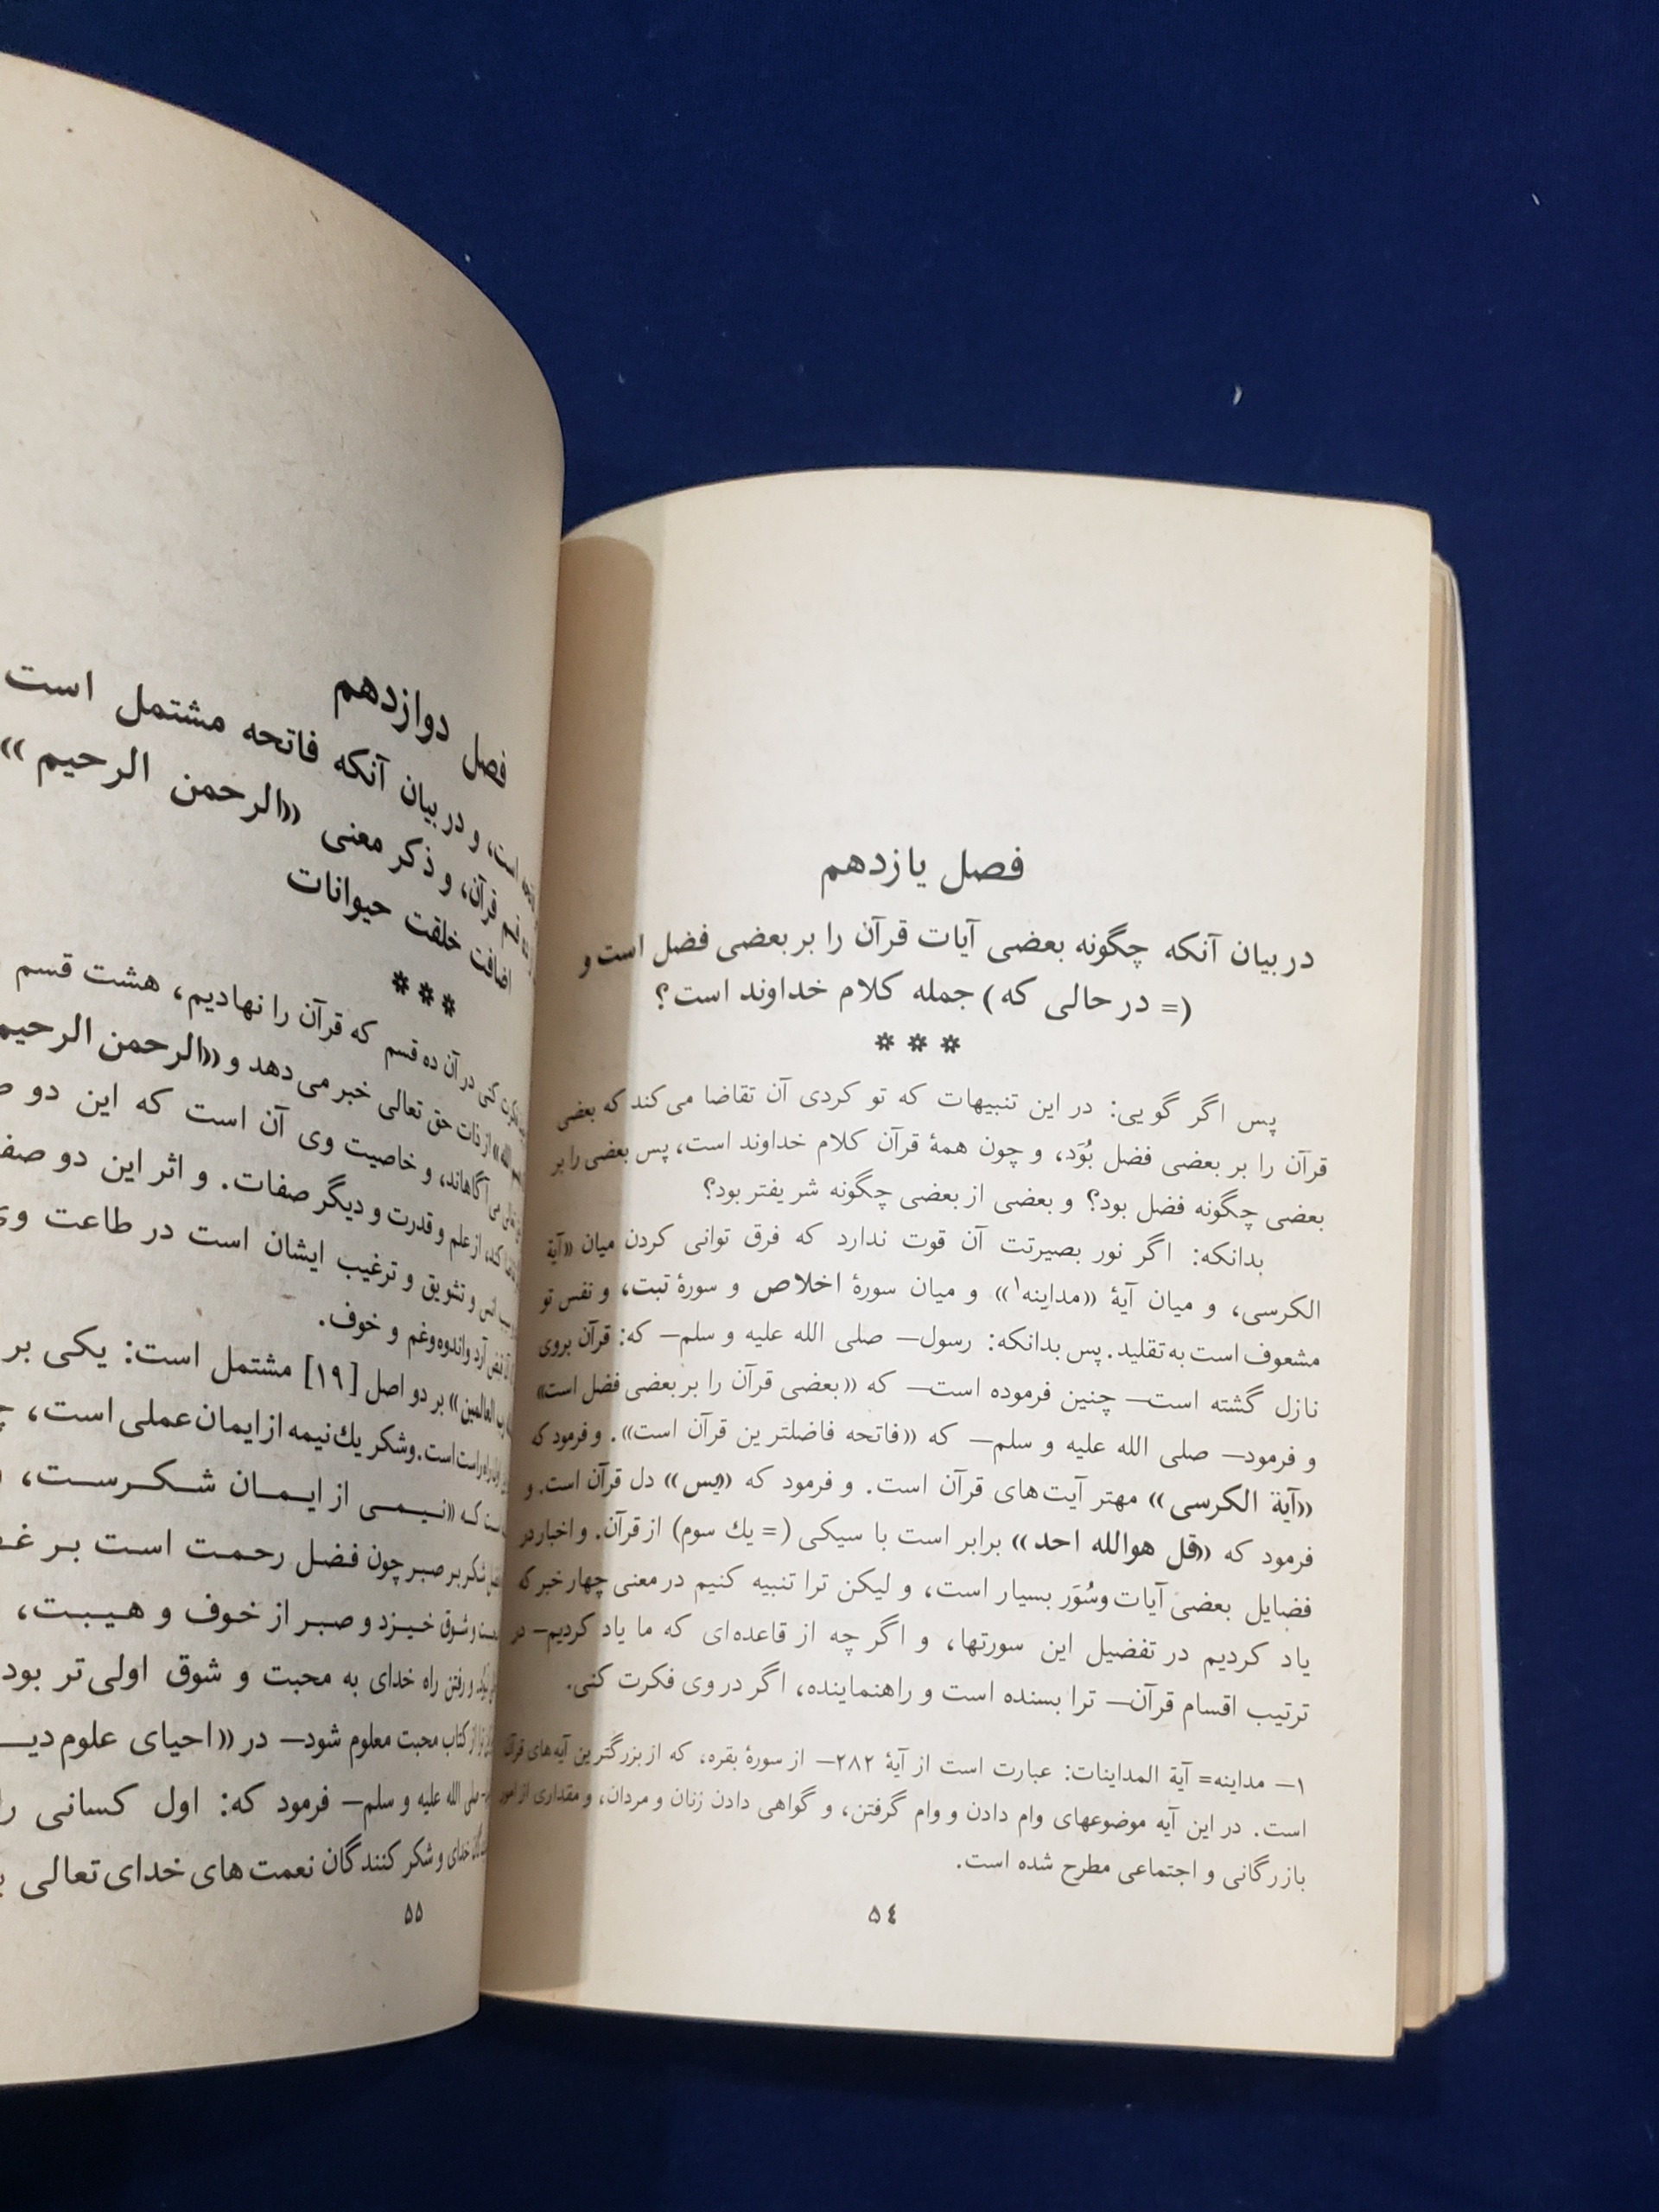 فصل یازدهم
در بیان آنکه چگونه بعضی آیات قرآن را بر بعضی فضل است و
(= در حالی که) جمله کلام خداوند است؟
* * *
پس اگر گویی: در این تنبیهات که تو کردی آن تقاضا می‌کند که بعضی
قرآن را بر بعضی فضل بُوَد، و چون همهٔ قرآن کلام خداوند است، پس بعضی را بر
بعضی چگونه فضل بود؟ و بعضی از بعضی چگونه شریفتر بود؟
بدانکه: اگر نور بصیرتت آن قوت ندارد که فرق توانی کردن میان «آیة
الکرسی، و میان آیهٔ «مداینه۱» و میان سورهٔ اخلاص و سورهٔ تبت، و نفس تو
مشعوف است به تقلید. پس بدانکه: رسول— صلی الله علیه و سلم— که: قرآن بروی
نازل گشته است— چنین فرموده است— که «بعضی قرآن را بر بعضی فضل است»
و فرمود— صلی الله علیه و سلم— که «فاتحه فاضلترین قرآن است». و فرمود که
«آیة الکرسی» مهتر آیت‌های قرآن است. و فرمود که «یس» دل قرآن است. و
فرمود که «قل هوالله احد» برابر است با سیکی (= یك سوم) از قرآن. و اخبار در
فضایل بعضی آیات وسُوَر بسیار است، و لیکن ترا تنبیه کنیم در معنی چهار خبر که
یاد کردیم در تفضیل این سورتها، و اگر چه از قاعده‌ای که ما یاد کردیم— در
ترتیب اقسام قرآن— ترا بسنده است و راهنماینده، اگر در وی فکرت کنی.
۱— مداینه= آیة المداینات: عبارت است از آیهٔ ۲۸۲— از سورهٔ بقره، که از بزرگترین آیه‌های قرآن
است. در این آیه موضوعهای وام دادن و وام گرفتن، و گواهی دادن زنان و مردان، و مقداری از امور
بازرگانی و اجتماعی مطرح شده است.
٥٤
فصل دوازدهم
است، و در بیان آنکه فاتحه مشتمل است
قرآن، و ذکر معنی «الرحمن الرحیم»
اضافت خلقت حیوانات
* * *
کنی در آن ده قسم که قرآن را نهادیم، هشت قسم
از ذات حق تعالی خبر می دهد و «الرحمن الرحیم
آگاهاند، و خاصیت وی آن است که این دو
کند، از علم و قدرت و دیگر صفات. و اثر این دو
و تشویق و ترغیب ایشان است در طاعت وی
آرد واندوه وغم و خوف.
رب العالمین» بر دو اصل [۱۹] مشتمل است: یکی بر
راست است. وشکر یك نیمه از ایمان عملی است،
که «نیمی از ایمان شکرست،
شکر بر صبر چون فضل رحمت است بر
وشوق خیزد و صبر از خوف و هیبت،
و رفتن راه خدای به محبت و شوق اولی تر بود
از کتاب محبت معلوم شود— در «احیای علوم
صلی الله علیه و سلم— فرمود که: اول کسانی
خدای و شکر کنندگان نعمت های خدای تعالی
٥٥